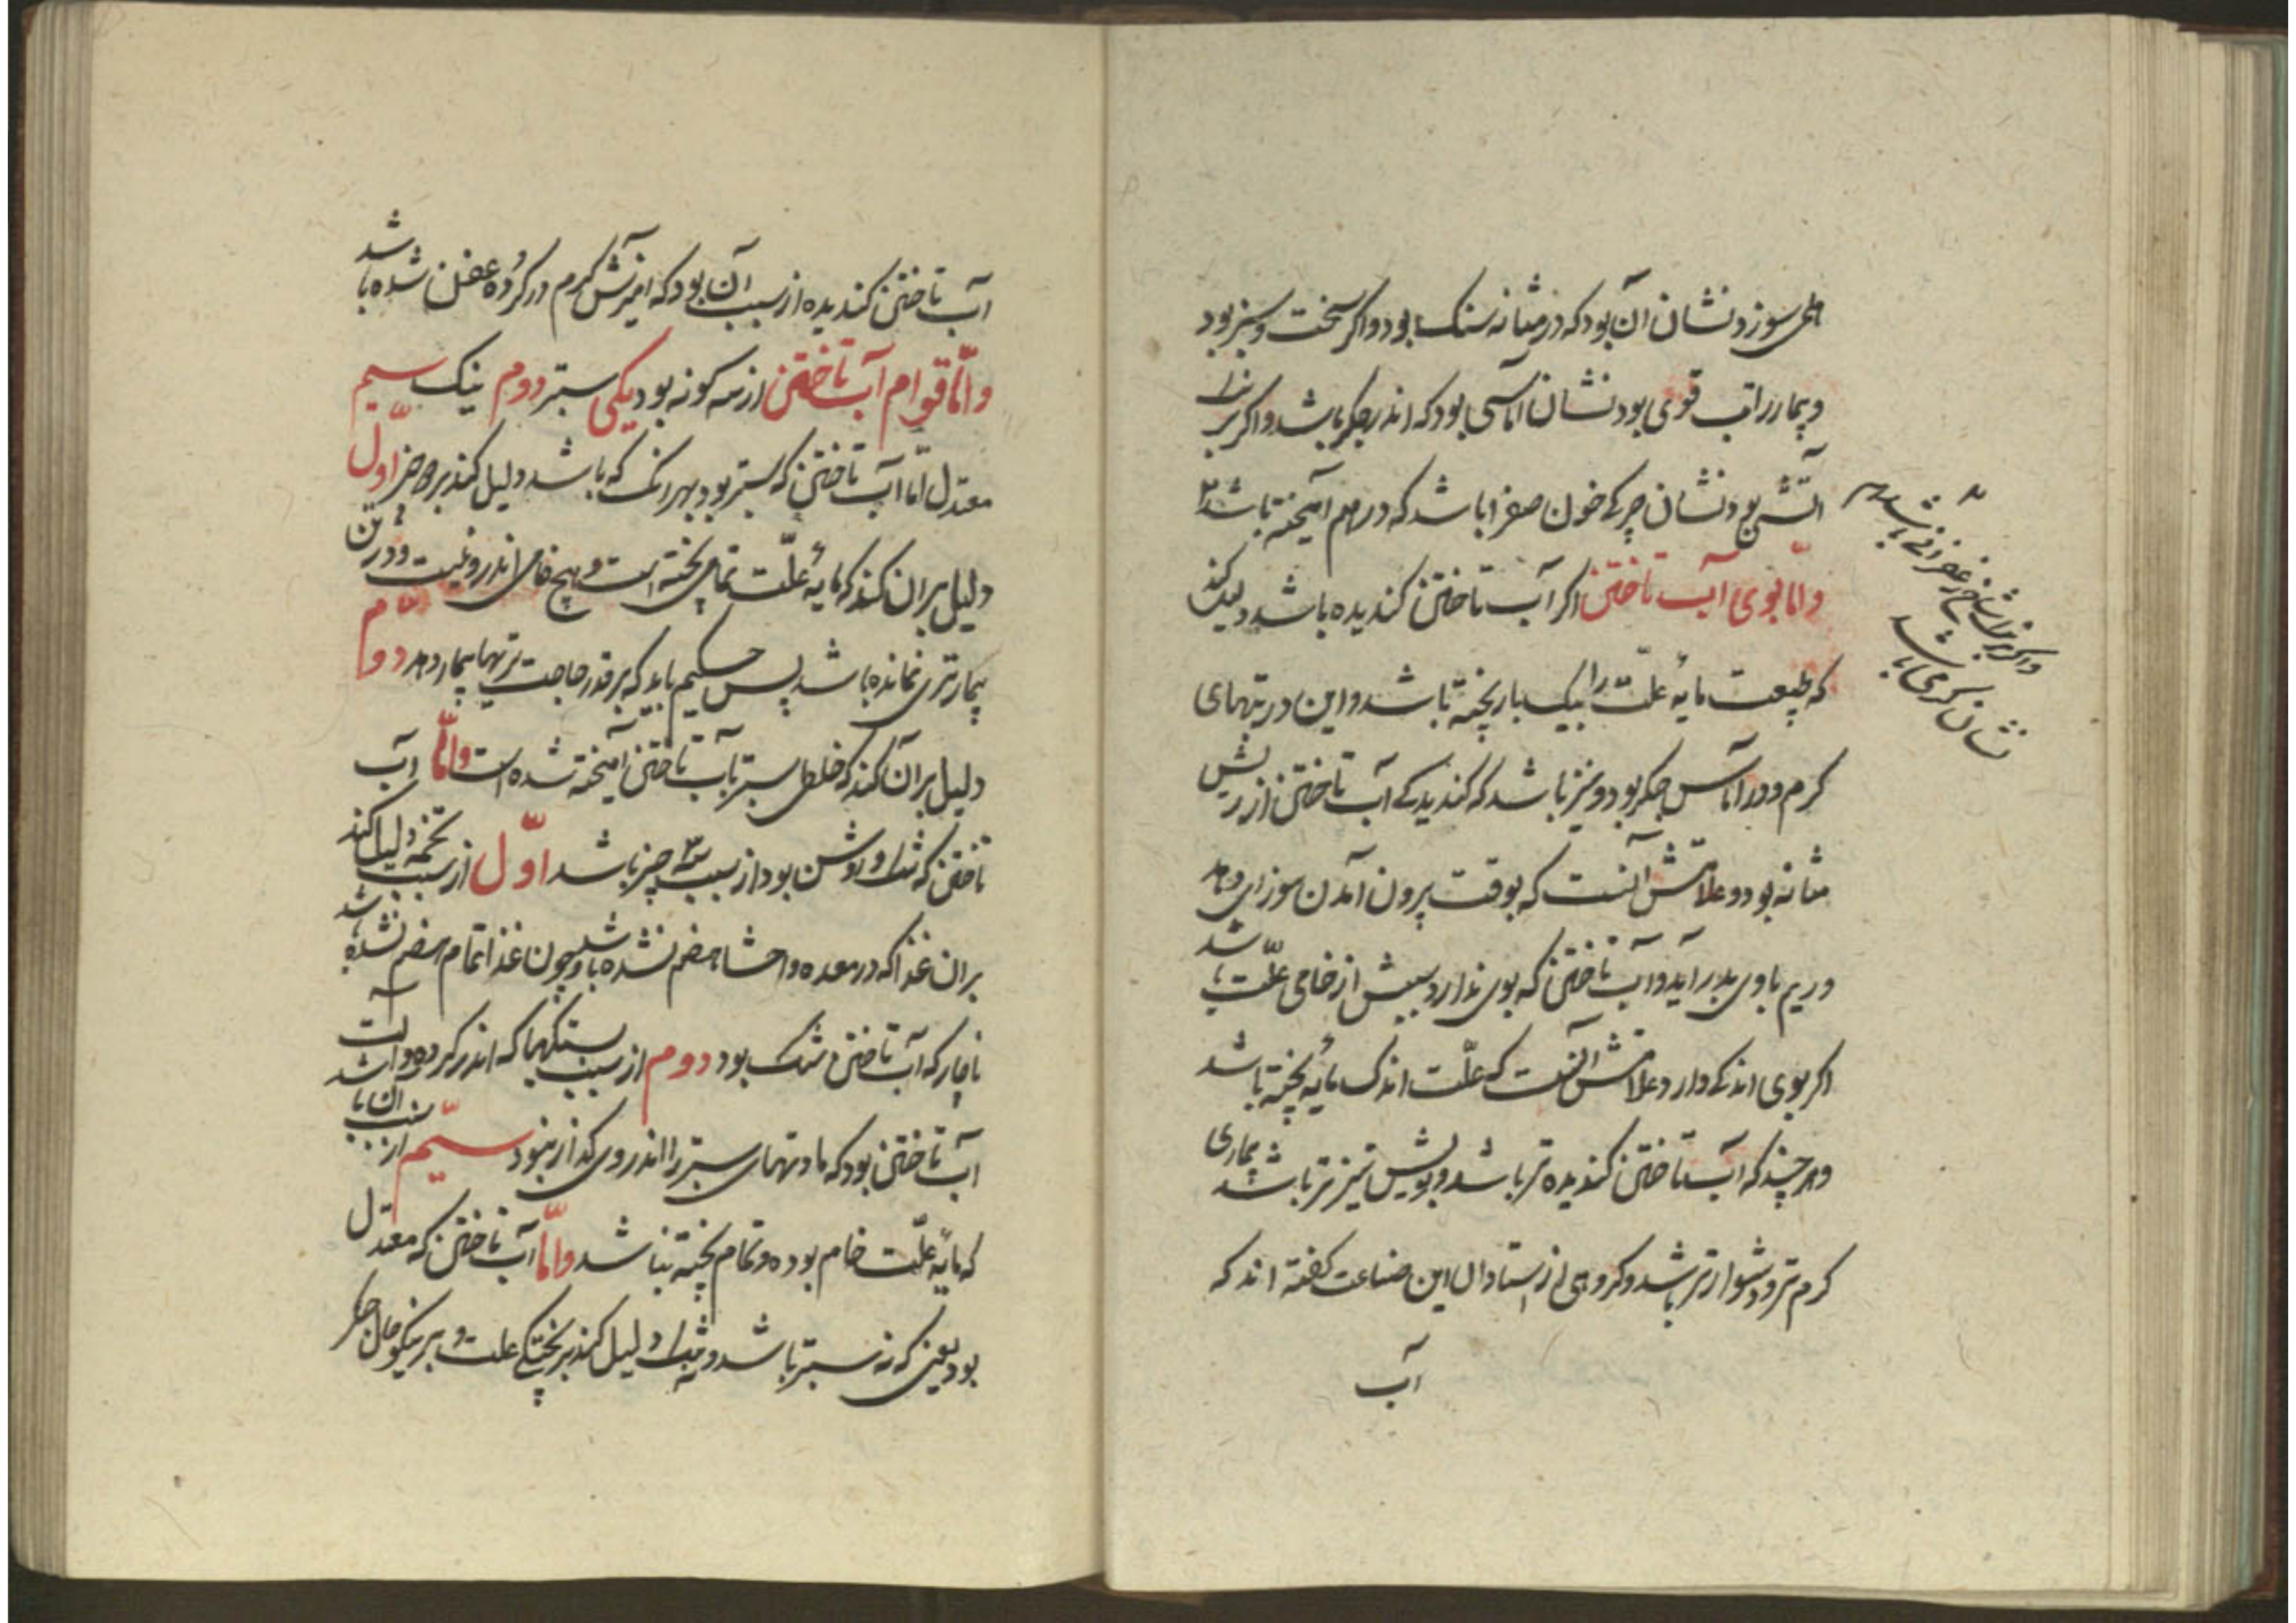 همی سوزد نشان آن بود که در مثانه سنک بود و اکر سخت و سبز بود
و بیمار را تب قوی بود نشان اماسی بود که اندر جکر باشد و اکر برنک
آتش بود نشان چرکی خون صفرا باشد که در هم امیخته باشد
واما بوی آب تاختن اکر آب تاختن کندیده باشد دلیل کند
که طبیعت مایهٔ علت را بیک بار پخته باشد و این در تبهای
کرم و در آماس جکر بود و نیز باشد که کندیدکی آب تاختن از ریش
مثانه بود و علامتش آنست که بوقت بیرون آمدن سوزامی دهد
و ریم با وی بدر آید و آب تاختن که بوی ندارد سببش از خامی علت باشد
اکر بوی اندکی دارد علامتش آنست که علت اندک مایه پخته باشد
و هر چند که آب تاختن کندیده تر باشد و بویش تیزتر باشد بیماری
کرم تر و دشوارتر باشد و کروهی از استادان این صناعت کفته اند که
آب
و اکر برنک شاخ زعفرانی باشد
نشان کرمی باشد
آب تاختن کندیده از سبب آن بود که امیزش کرم در کرده عفن شده باشد
واما قوام آب تاختن از سه کونه بود یکی ستبر دوم تنک سیم
معتدل اما آب تاختن که ستبر بود بهر رنک که باشد دلیل کند بر دو چیز اول
دلیل بر آن کند که مایهٔ علت تمام پخته است و هیچ خامی اندرو نیست و در تن
بیمار تری نمانده باشد پس حکیم باید که بر قدر حاجت تریها بیمار دهد دوم
دلیل بر آن کند که خلطی ستبر با آب تاختن آمیخته شده است واما آب
تاختن که تنک و روشن بود از سبب ۳ چیز باشد اول از سبب تخمه دلیل کند
بر ان غذا که در معده و احشا هضم نشده باشد و چون غذا تمام هضم نشده باشد
ناچار که آب تاختن تنک بود دوم از سبب سنکها که اندر کرده و آلت
آب تاختن بود که مادتهای ستبر را اندر وی کذار نبود سیم از سبب آن باشد
که مایهٔ علت خام بوده و تمام پخته نباشد واما آب تاختن که معتدل
بود یعنی که نه ستبر باشد و نه تنک دلیل کند بر پختکی علت و بر نیکو حال جکر